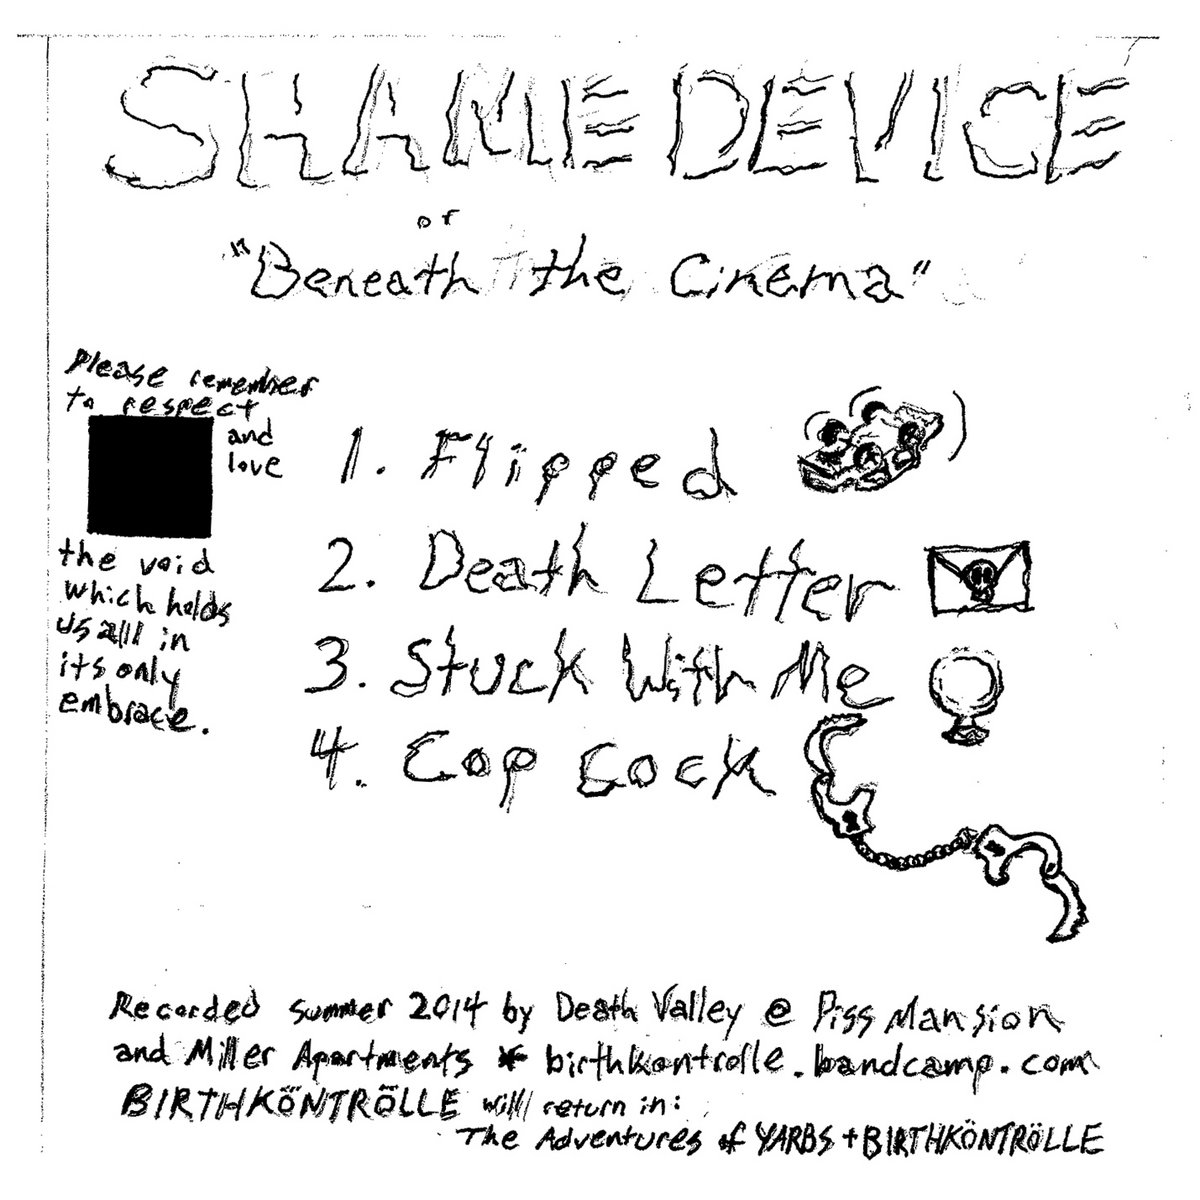 SHAME DEVICE
or
"Beneath the Cinema"
Please remember
to respect
and
love
the void
which holds
us all in
its only
embrace.
1. Flipped
2. Death Letter
3. Stuck With Me
4. Cop Cock
Recorded summer 2014 by Death Valley @ Piss Mansion
and Miller Apartments * birthkontrolle.bandcamp.com
BIRTHKÖNTRÖLLE will return in:
The Adventures of YARBS + BIRTHKÖNTRÖLLE